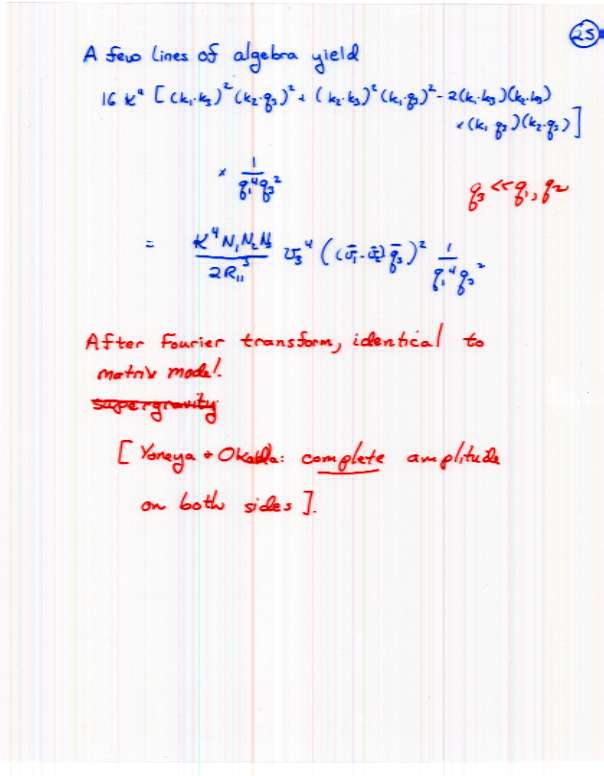 25
A few lines of algebra yield
16 K⁴ [ (k₁·k₃)² (k₂·q₃)² + (k₂·k₃)² (k₁·q₃)² - 2(k₁·k₃)(k₂·k₃)
×(k₁·q₃)(k₂·q₃) ]
× 1/(q₁⁴ q₃²)
q₃ << q₁, q₂
= K⁴ N₁ N₂ N₃ / 2R₁₁⁵ v₃⁴ ( (v̄₁ - v̄₂) q̄₃ )² 1/(q₁⁴ q₃²)
After Fourier transform, identical to
matrix model.
supergravity
[ Yoneya + Okawa: complete amplitude
on both sides ].